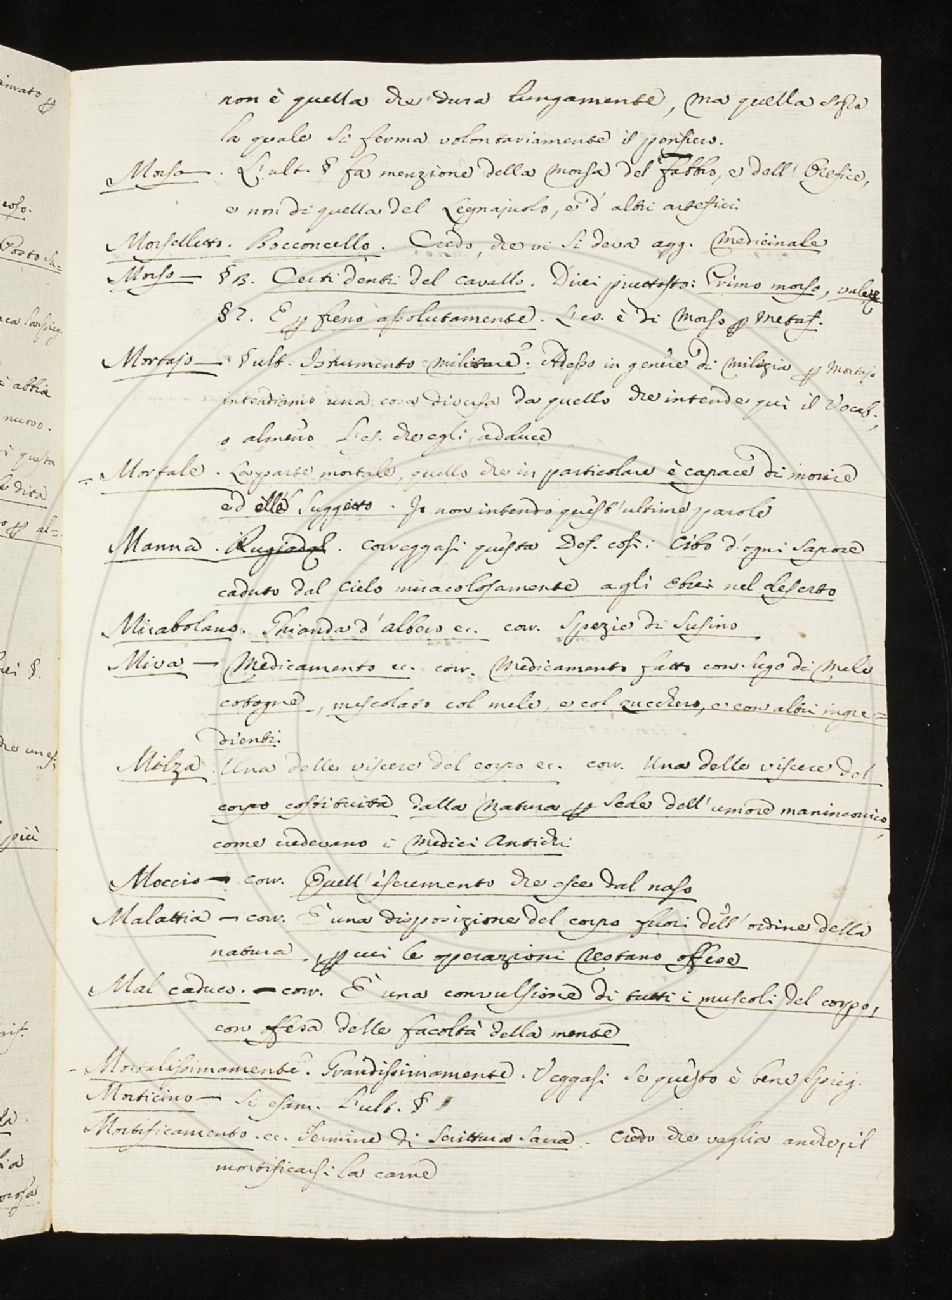 non è quella che dura lungamente, ma quella sopra
la quale si ferma volontariamente il pensiero.
Morsa. L'ult. § fa menzione della Morsa del fabbro, e dell'Orefice,
e non di quella del Legnajuolo, e d'altri artefici
Morselletto. Bocconcello. Credo, che vi si deva agg. Medicinale
Morso — § 13. Certi denti del cavallo. Direi piuttosto: Primo morso, vale
§ 2. E p freno assolutamente. L'es. è di Morso p Metaf.
Mortajo — § ult. Istrumento militare. Adesso in genere di Milizia p Mortajo
intendiamo una cosa diversa da quello che intende qui il Vocab.,
o almeno l'es. che egli adduce
- Mortale. La parte mortale, quello che in particolare è capace di morire
ed è il suggetto. Io non intendo quest'ultime parole
Manna. Rugiada. correggasi questa Def. così: Cibo d'ogni sapore
caduto dal Cielo miracolosamente agli Ebrei nel deserto
Mirabolano. Ghianda d'albero ec. corr. Spezie di Susino
Miva — Medicamento ec. corr. Medicamento fatto con sugo di Mele
cotogne, mescolato col mele, e col zucchero, e con altri ingre=
dienti.
Milza. Una delle viscere del corpo ec. corr. Una delle viscere del
corpo costituita dalla Natura p sede dell'umore maninconico,
come credevano i Medici Antichi
Moccio — corr. Quell'escremento che esce dal naso
Malattia — corr. È una disposizione del corpo fuori dell'ordine della
natura, p cui le operazioni restano offese
Mal caduco. — corr. È una convulsione di tutti i muscoli del corpo,
con offesa delle facoltà della mente
- Mortalissimamente. Grandissimamente. Veggasi se questo è bene spieg.
Morticino — Si esam. L'ult. §
Mortificamento. ec. Termine di Scrittura Sacra. Credo che vaglia anche, il
mortificarsi la carne